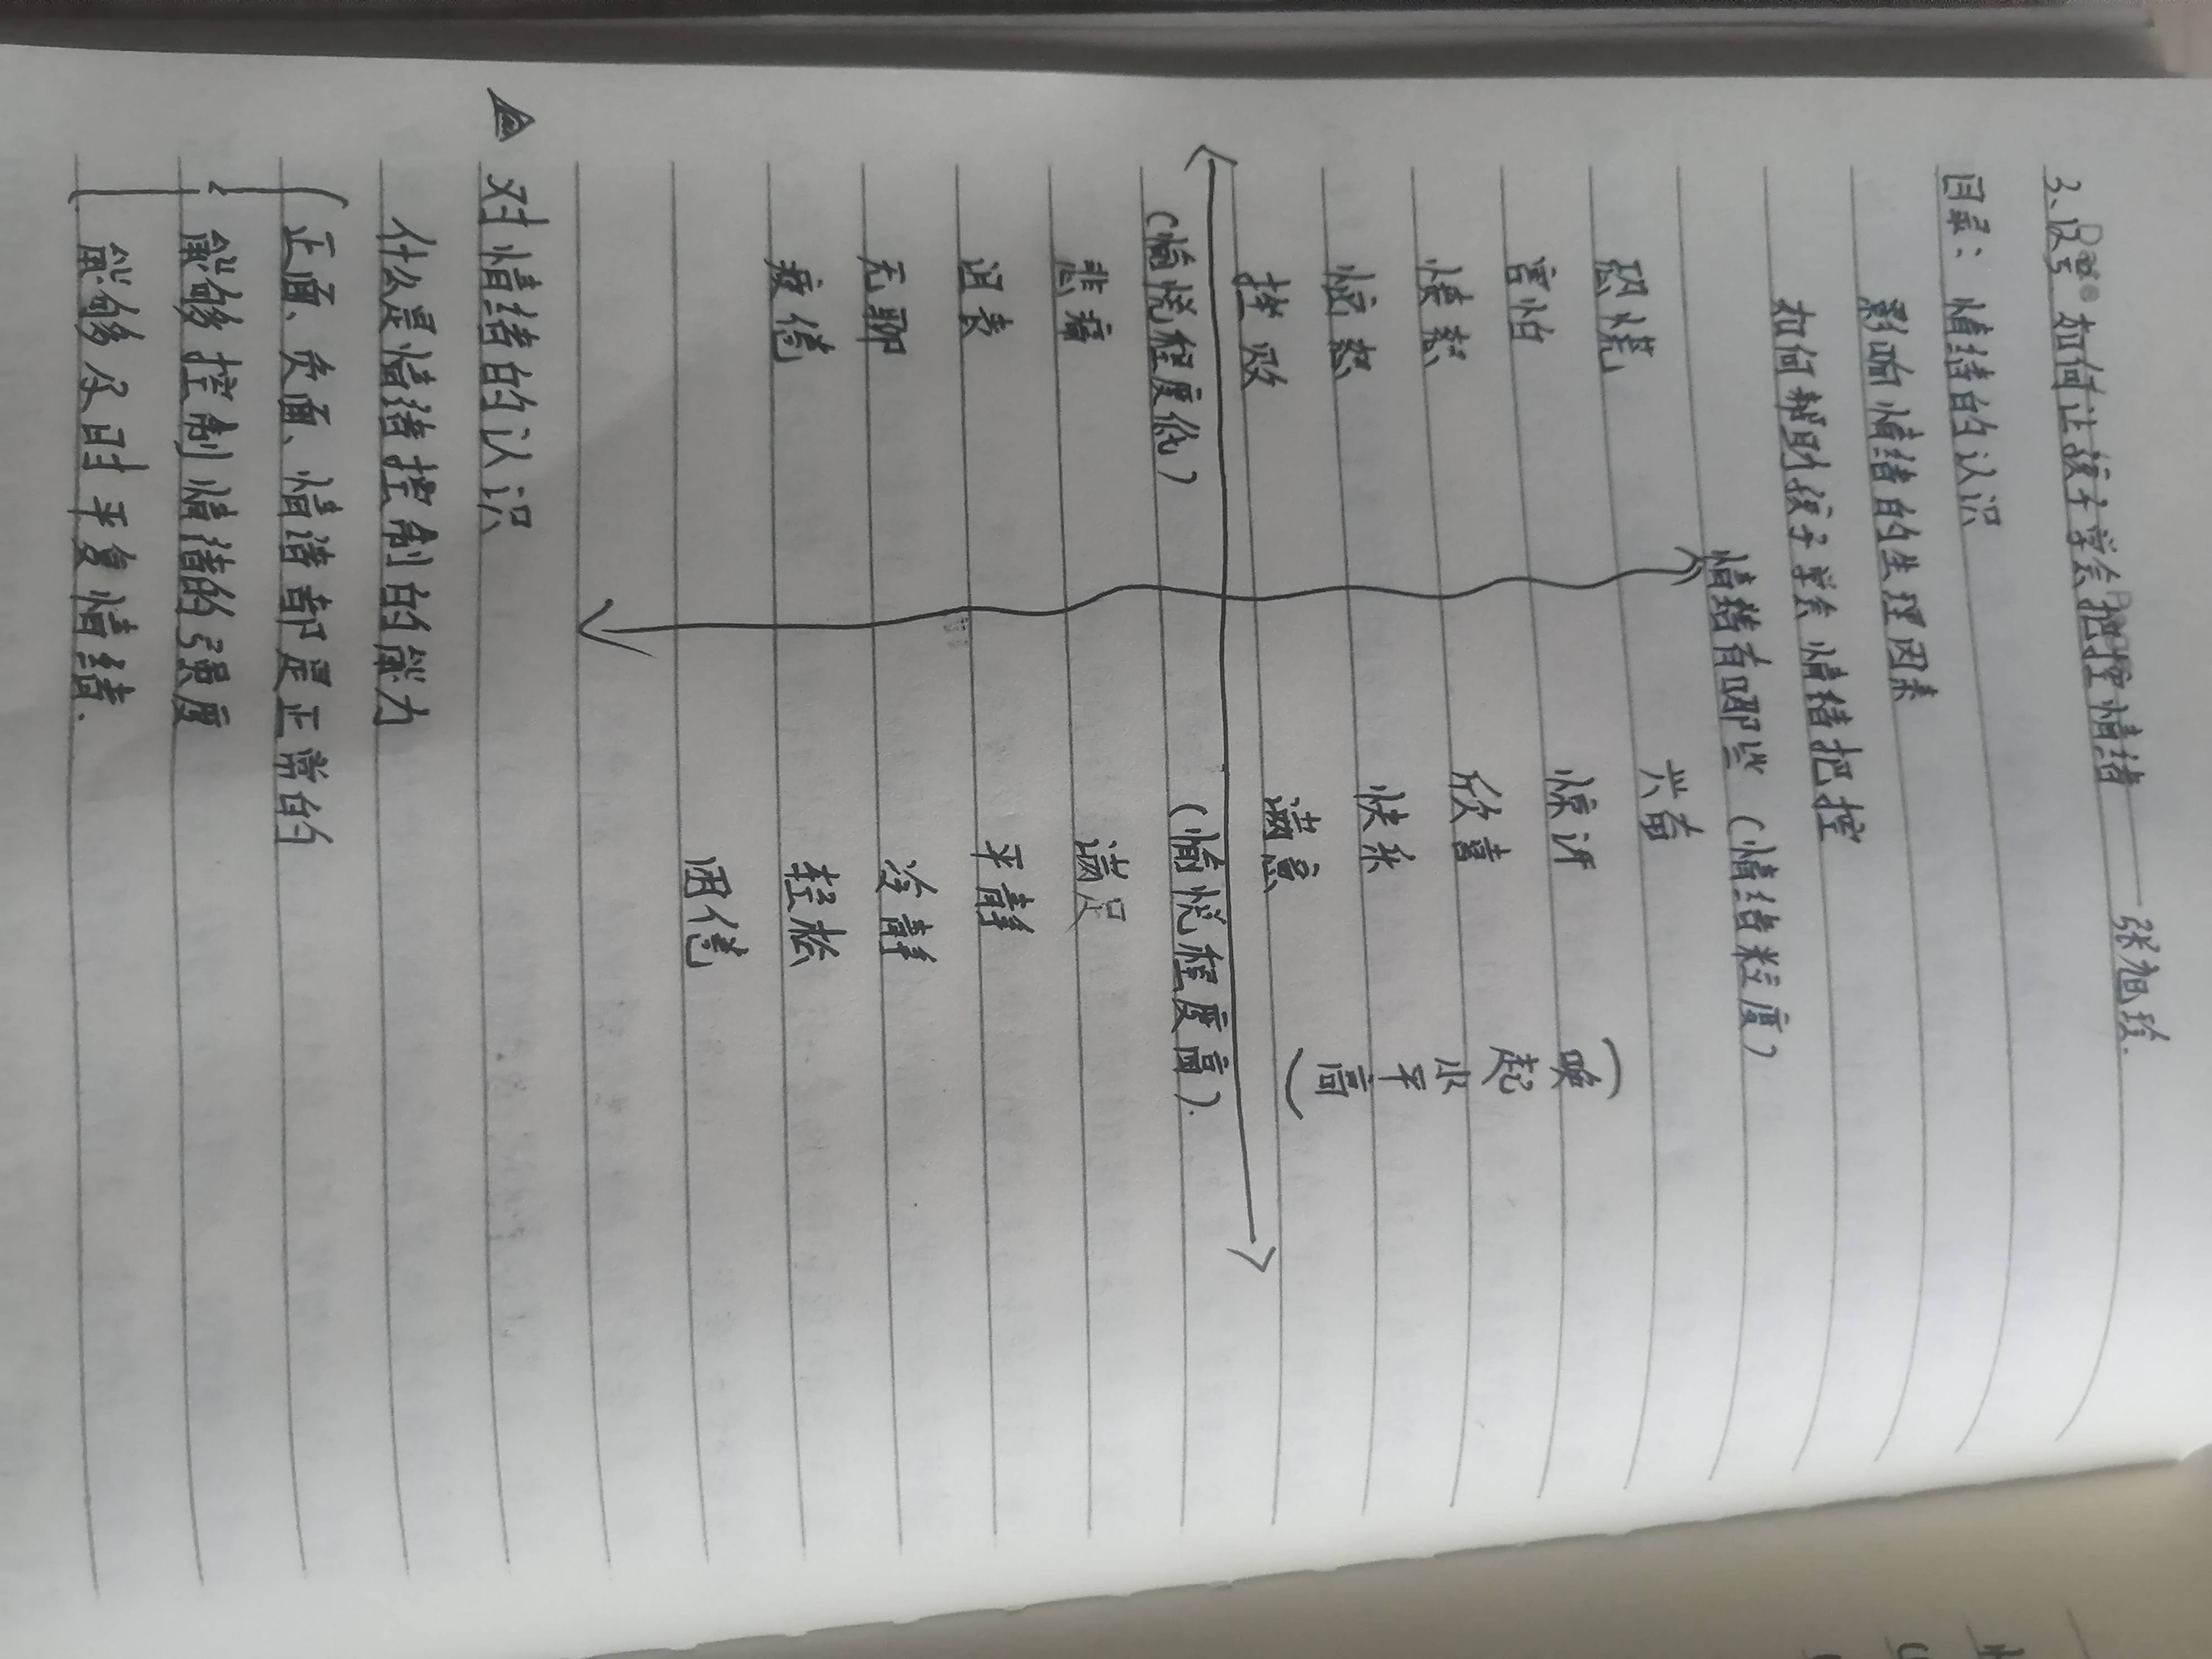 3、12号 如何让孩子学会把控情绪——张旭玲.
目录：情绪的认识
影响情绪的生理因素
如何帮助孩子学会情绪把控
情绪有哪些（情绪粒度）
恐慌 兴奋
害怕 惊讶
愤怒 欣喜
快乐
挫败 满意
（唤起水平高）
（愉悦程度低） （愉悦程度高）.
悲痛 满足
沮丧 平静
无聊 冷静
疲倦 轻松
困倦
对情绪的认识
什么是情绪控制的能力
正面、负面、情绪都是正常的
能够控制情绪的强度
能够及时平复情绪.